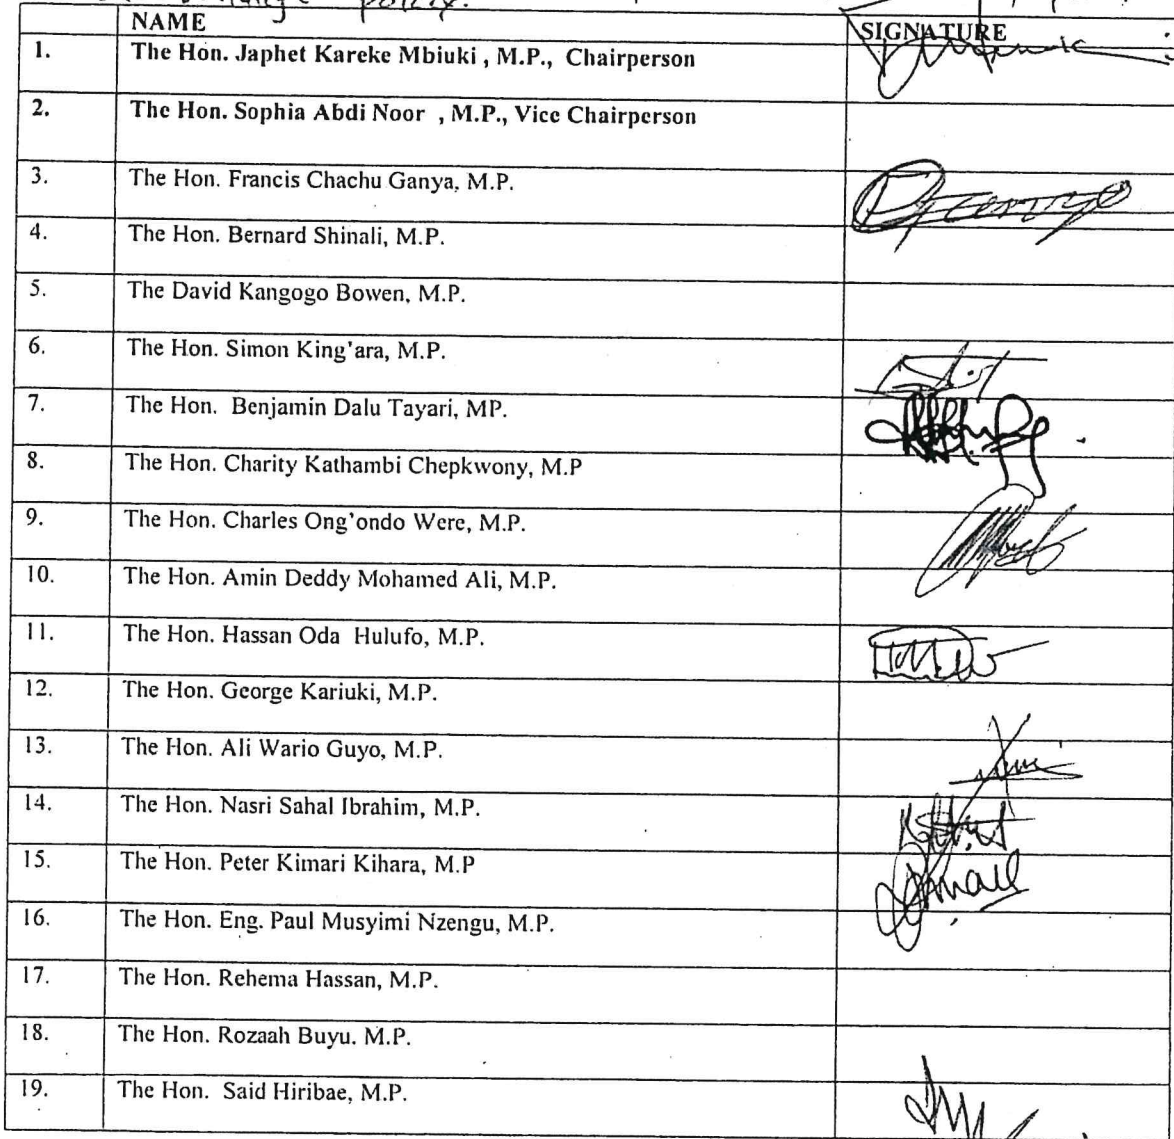 policy.
NAME SIGNATURE
1. The Hon. Japhet Kareke Mbiuki , M.P., Chairperson
2. The Hon. Sophia Abdi Noor , M.P., Vice Chairperson
3. The Hon. Francis Chachu Ganya, M.P.
4. The Hon. Bernard Shinali, M.P.
5. The David Kangogo Bowen, M.P.
6. The Hon. Simon King'ara, M.P.
7. The Hon. Benjamin Dalu Tayari, MP.
8. The Hon. Charity Kathambi Chepkwony, M.P
9. The Hon. Charles Ong'ondo Were, M.P.
10. The Hon. Amin Deddy Mohamed Ali, M.P.
11. The Hon. Hassan Oda Hulufo, M.P.
12. The Hon. George Kariuki, M.P.
13. The Hon. Ali Wario Guyo, M.P.
14. The Hon. Nasri Sahal Ibrahim, M.P.
15. The Hon. Peter Kimari Kihara, M.P
16. The Hon. Eng. Paul Musyimi Nzengu, M.P.
17. The Hon. Rehema Hassan, M.P.
18. The Hon. Rozaah Buyu. M.P.
19. The Hon. Said Hiribae, M.P.